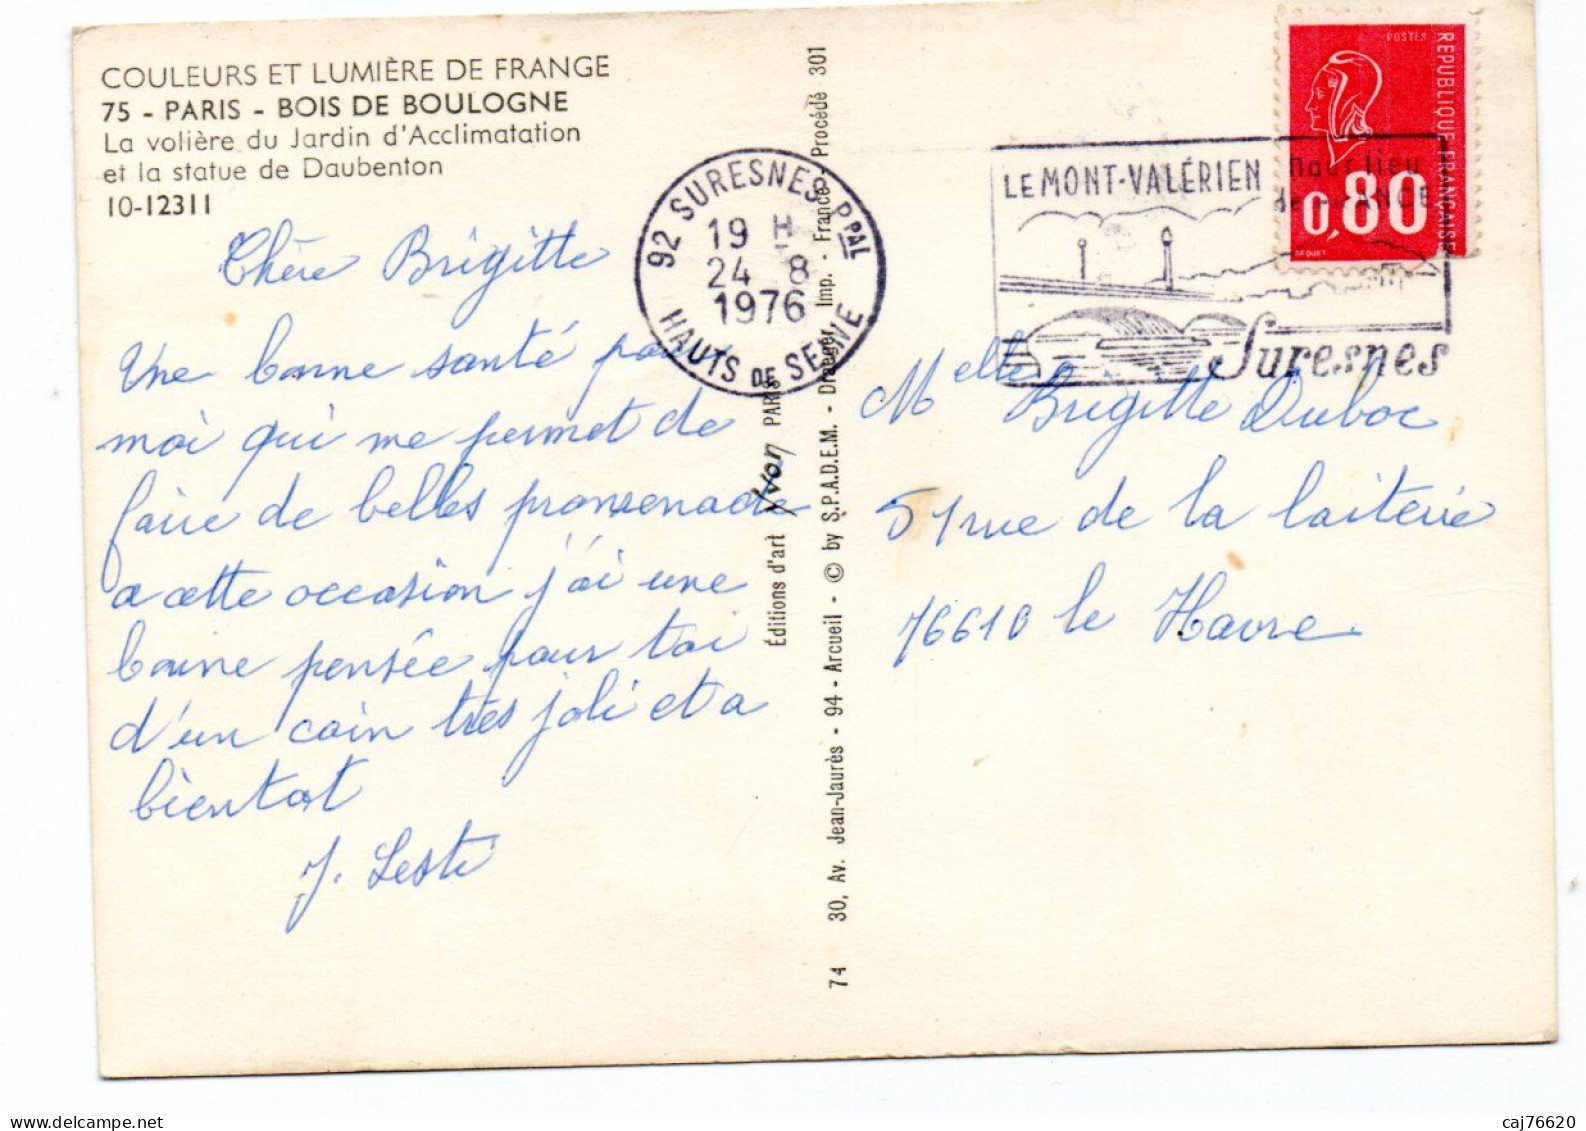 COULEURS ET LUMIÈRE DE FRANCE
75 - PARIS - BOIS DE BOULOGNE
La volière du Jardin d'Acclimatation
et la statue de Daubenton
10-12311
Chère Brigitte
Une bonne santé pour
moi qui me permet de
faire de belles promenade
a cette occasion j'ai une
bonne pensée pour toi
d'un coin très joli et a
bientot
J. Lesti
92 SURESNES PPAL
19 H
24 8
1976
HAUTS DE SEINE
Éditions d'art Yvon PARIS
74 30, Av. Jean-Jaurès - 94 - Arcueil - © by S.P.A.D.E.M. - Draeger, Imp. - France - Procédé 301
LE MONT-VALÉRIEN Haut lieu
Suresnes
POSTES
REPUBLIQUE FRANÇAISE
0,80
BEQUET
Melle Brigitte Duboc
51 rue de la laiterie
76610 le Havre
caj76620